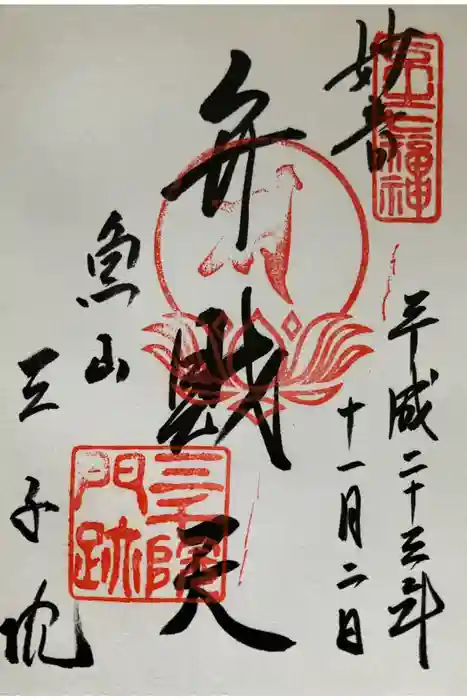 妙音
平成二十三年
十一月二日
弁財天
魚山
三千院
京之七福神
三千院門跡